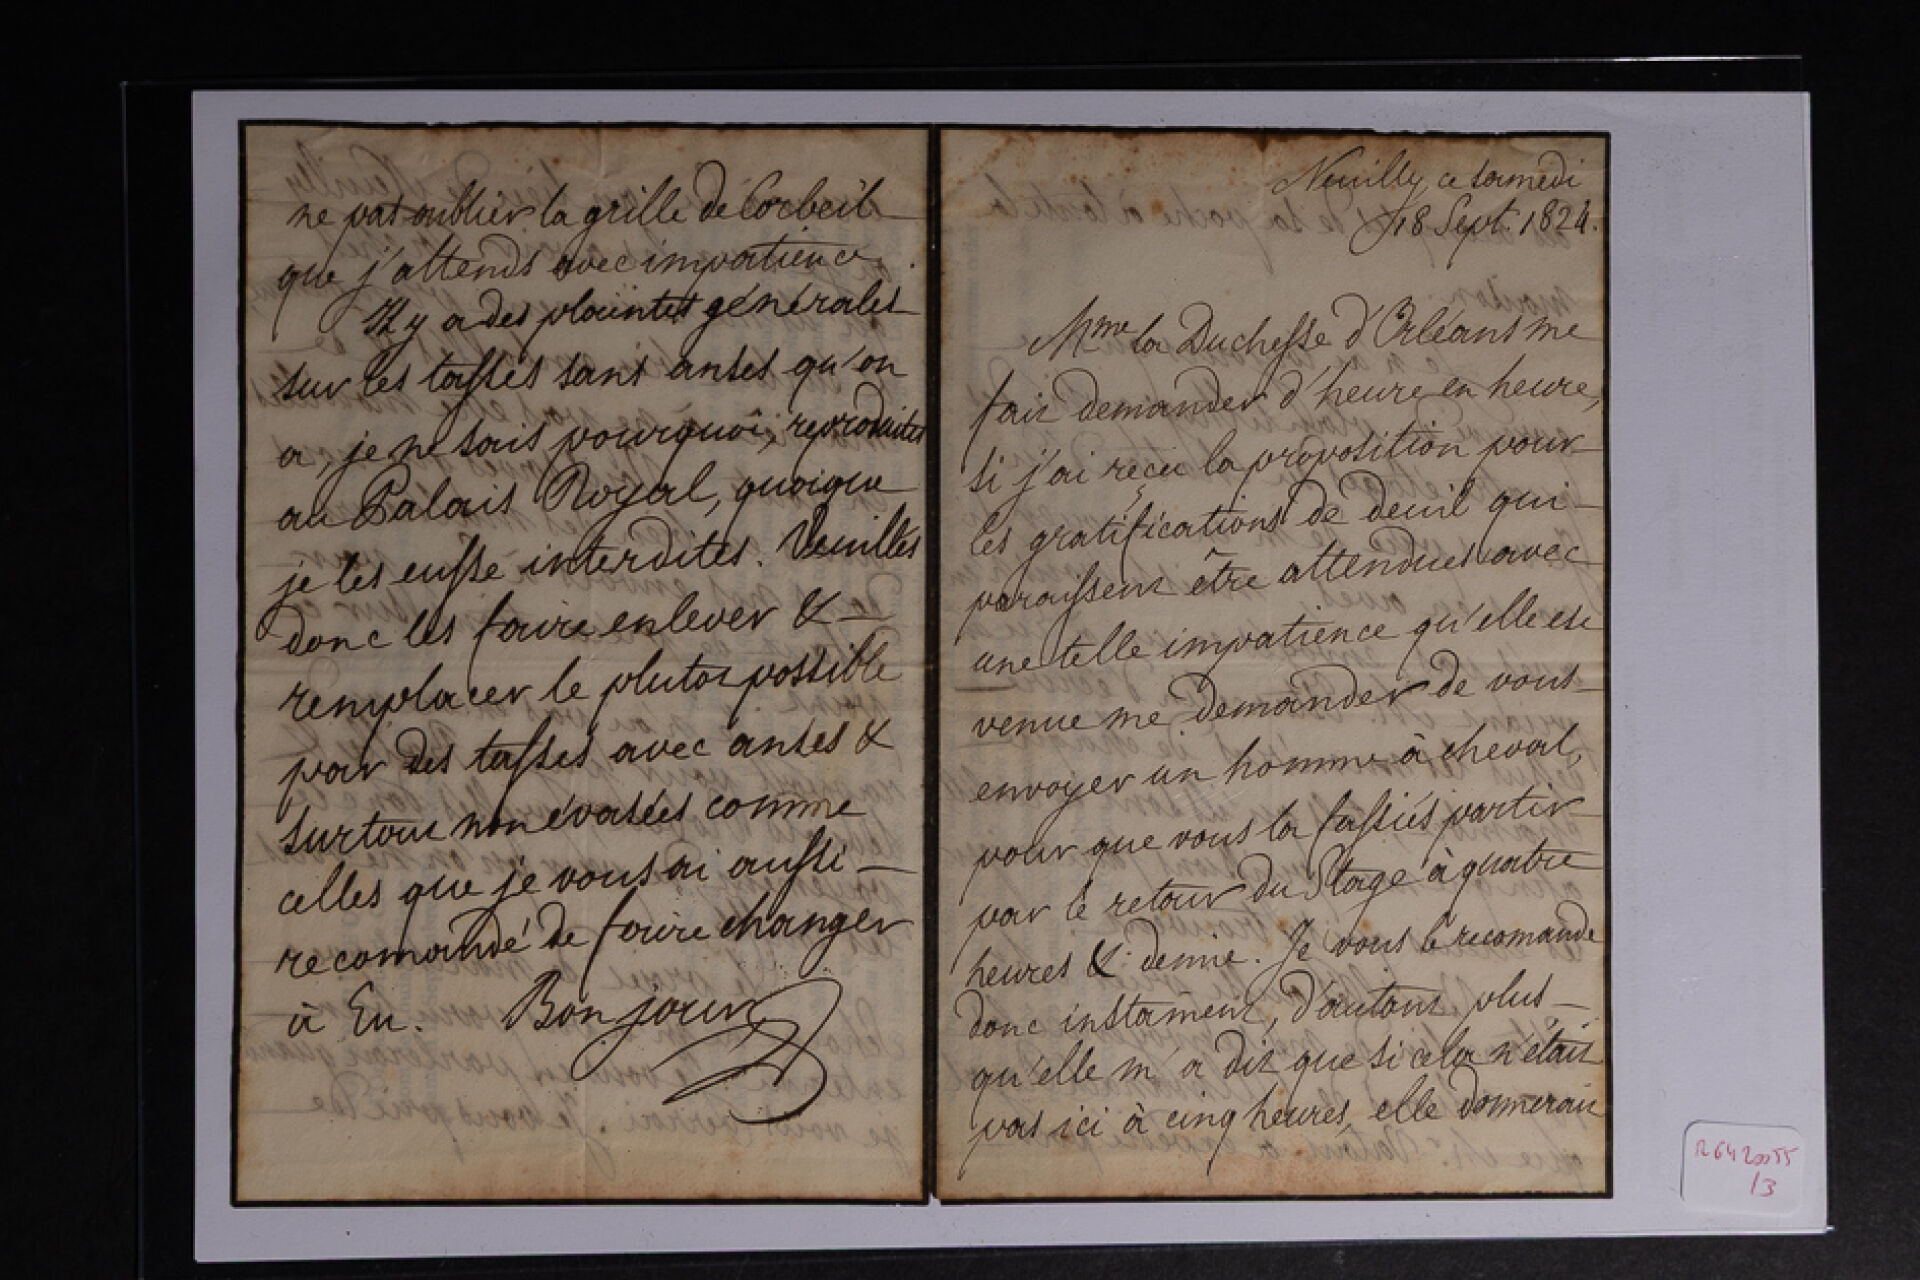 Neuilly, ce samedi
18 Sept. 1824.
Mme la Duchesse d'Orléans me
fait demander d'heure en heure,
si j'ai reçu la proposition pour
les gratifications de deuil qui
paraissent être attendues avec
une telle impatience qu'elle est
venue me demander de vous
envoyer un homme à cheval,
pour que vous la fassiés partir
par le retour du Stage à quatre
heures & demie. Je vous le recomande
donc instament, d'autant plus
qu'elle m'a dit que si cela n'était
pas ici à cinq heures, elle donnerait
ne pas oublier la grille de Corbeil
que j'attends avec impatience.
Il y a des plaintes générales
sur les tasses sans anses qu'on
a, je ne sais pourquoi, reproduites
au Palais Royal, quoique
je les eusse interdites. Veuillés
donc les faire enlever &
remplacer le plutot possible
par des tasses avec anses &
surtout non évasées comme
celles que je vous ai aussi
recomandé de faire changer
à Eu. Bonjour
R6420055
/3